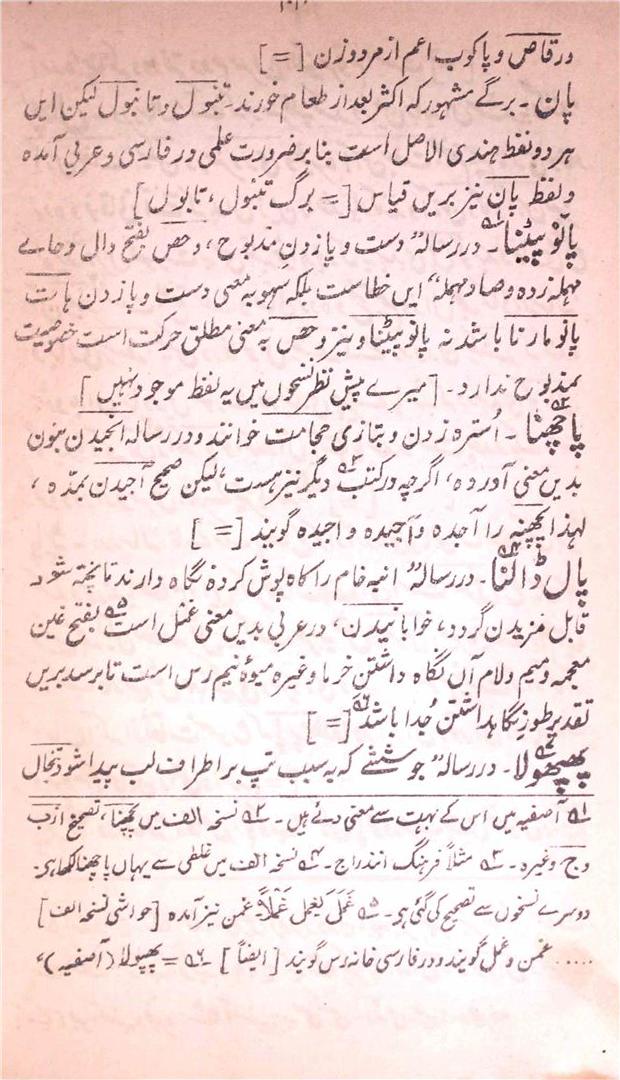 ورقاص و پا کوب اعم از مرد و زن [=]
پان۔ برگے مشہور کہ اکثر بعد از طعام خورند۔ تنبول و تانبول لیکن ایں
ہر دو لفظ ہندی الاصل است بنا بر ضرورت علمی در فارسی و عربی آمدہ
و لفظ پان نیز بریں قیاس [= برگ تنبول، تابول]
پانو پیٹنا۔ در رسالہ” دست و پا زدنِ مذبوح، وحص بفتح دال و حاے
مہملہ زدہ و صاد مہملہ“ ایں خطاست بلکہ سہو بہ معنی دست و پا زدن ہات
پانو مارنا باشد نہ پانو پیٹنا و نیز وحص بہ معنی مطلق حرکت است خصوصیت
بمذبوح ندارد۔ [میرے پیش نظر نسخوں میں یہ لفظ موجود نہیں]
پاچھنا۔ اُسترہ زدن و بتازی حجامت خوانند و در رسالہ انجیدن بنون
بدیں معنی آوردہ، اگرچہ در کتب ۳ دیگر نیز ہست، لیکن صحیح آجیدن بمدّہ،
لہذا پچھنہ را آجدہ و آجیدہ و اجیدہ گویند [=]
پال ڈالنا۔ در رسالہ” انبہ خام را کاہ پوش کردہ نگاہ دارند تا پختہ شود
قابل مزیدن گردد، خوابانیدن، در عربی بدیں معنی غمل است ۵ بفتح غین
معجمہ و میم و لام آں نگاہ داشتن خرما و غیرہ میوۂ نیم رس است تا برسد بریں
تقدیر طور نگاہداشتن جُدا باشد [=]
پھپھولا۔ در رسالہ” جوششے کہ بہ سبب تپ بر اطراف لب پیدا شود تبخال
۱ آصفیہ میں اس کے بہت سے معنی دئے ہیں۔ ۲ نسخہ الف میں پچھنا، تصحیح از ب
و ج وغیرہ۔ ۳ مثلاً فرہنگ انندراج۔ ۴ نسخہ الف میں غلطی سے یہاں پاچھنا لکھا ہی۔
دوسرے نسخوں سے تصحیح کی گئی ہی۔ ۵ غَمَلَ یَغمِل غَمْلاً۔ غمن نیز آمدہ [حواشی نسخہ الف]
..... غمن و غمل گویند و در فارسی خانہ رس گویند [ایضاً] ۔ ۶ = پھپولا (آصفیہ)،